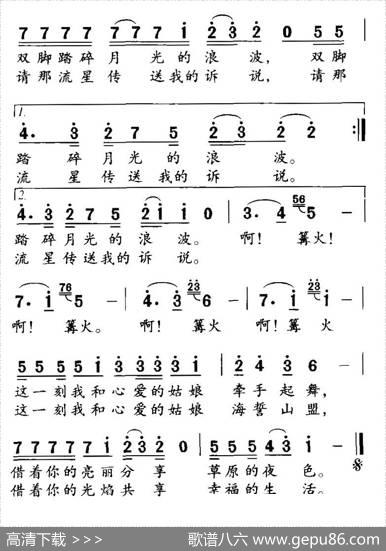 7 7 7 7 7 7 i 2 3 2 0 5 5
双脚踏碎月 光 的 浪 波， 双脚
请那流星传 送我的诉 说， 请那
1.
4. 3 2 7 5 2 3 2 2
踏 碎月光的 浪 波。
流 星传送我的 诉 说。
2.
4. 3 2 7 5 2 i i 0 3. 4 56 5 —
踏碎月光的 浪波。 啊！篝火！
流星传送我的 诉 说。
7. i 76 5 — 4. 3 6 23 — 7. i 23 i —
啊！篝火。 啊！篝火！ 啊！篝火
5 5 5 5 i 3 3 3 3 i 2 4 3 6 —
这一刻我和心爱的姑娘 牵手起舞，
这一刻我和心爱的姑娘 海誓山盟，
7 7 7 7 7 i 2 3 2 0 5 5 5 4 3 i —
借着你的亮丽分 享 草原的夜 色。
借着你的光焰共 享 幸福的生 活。
高清下载 >>> 歌谱八六 www.gepu86.com